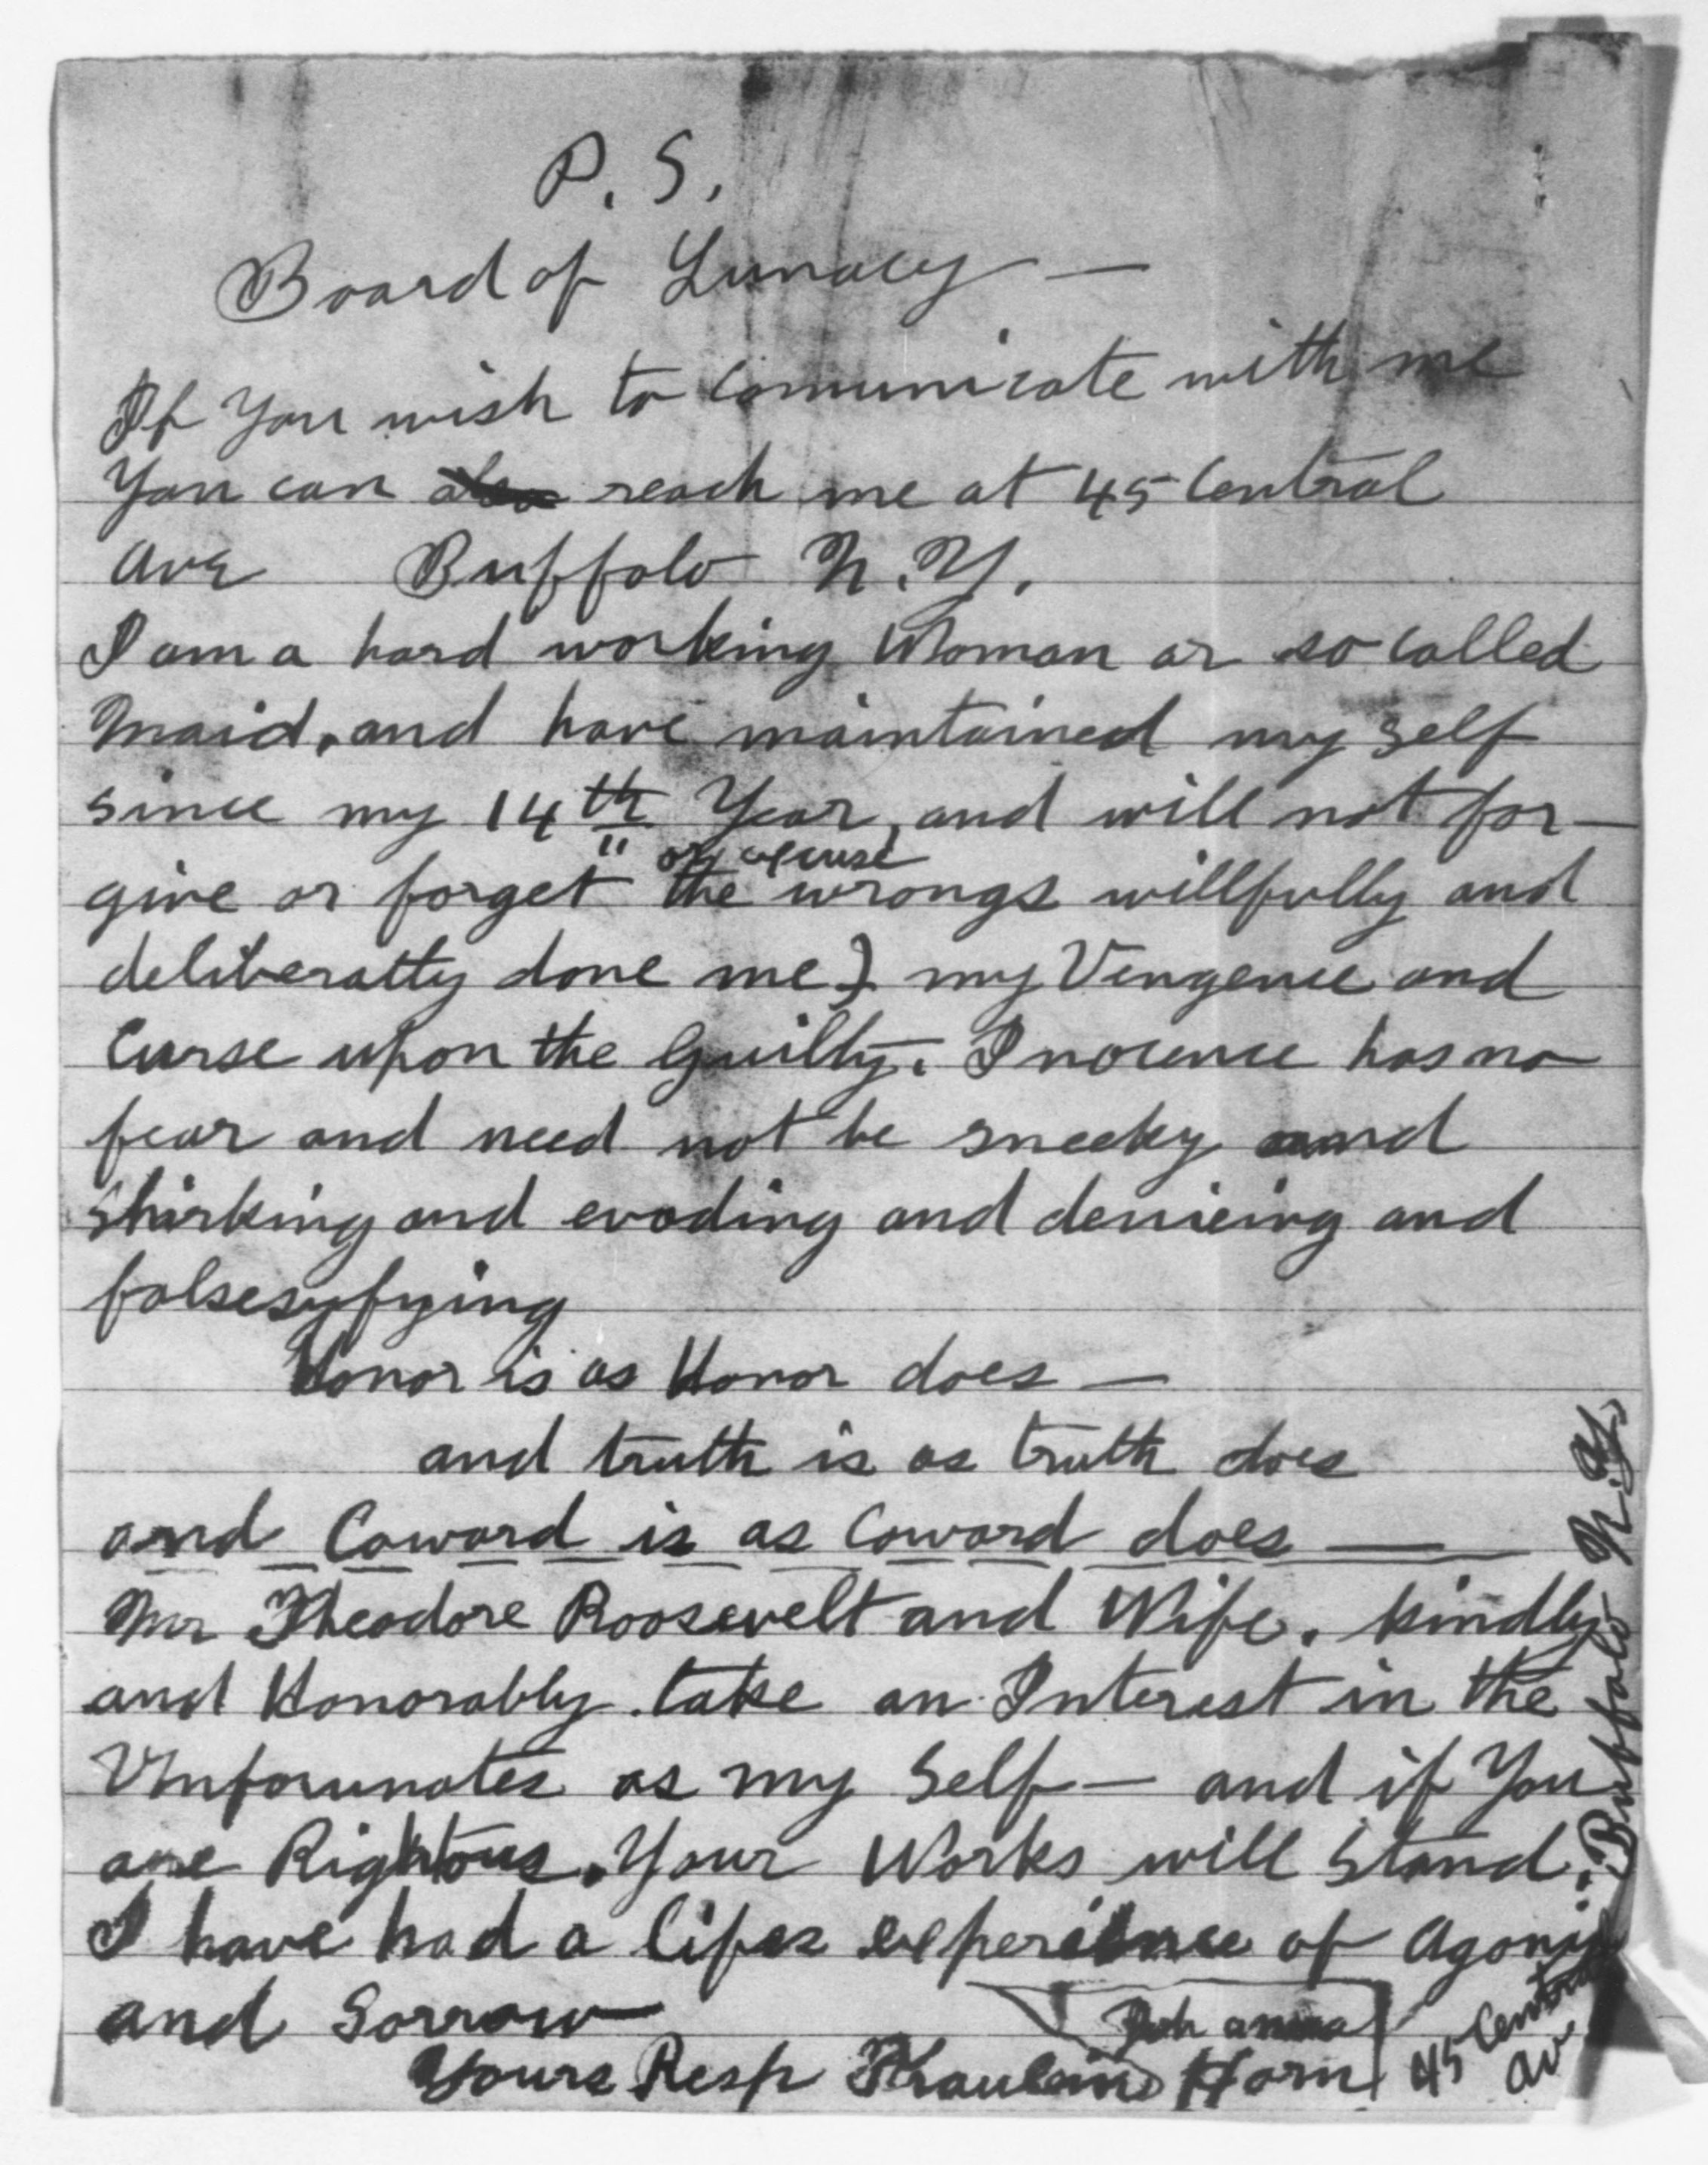 P. S.
Board of Lunacy —
If You wish to Comunicate with me
You can reach me at 45 Central
Ave Buffalo N.Y.
I am a hard working Woman or so called
Maid, and have maintained my self
since my 14th Year, and will not for-
or excuse
give or forget " the wrongs willfully and
deliberatty done me) my Vengence and
Curse upon the Guilty. Inocence has no
fear and need not be sneeky and
shirking and evading and denieing and
falsesyfying
Honor is as Honor does —
and truth is as truth does
and Coward is as Coward does —
Mr Theodore Roosevelt and Wife. kindly
and Honorably take an Interest in the
Unforunates as my Self — and if You
are Rightous. Your Works will Stand.
I have had a lifes experience of Agonie
and Sorrow
Johanna
Yours Resp Fraulein Horn
45 Central
Av
Buffalo N.Y.